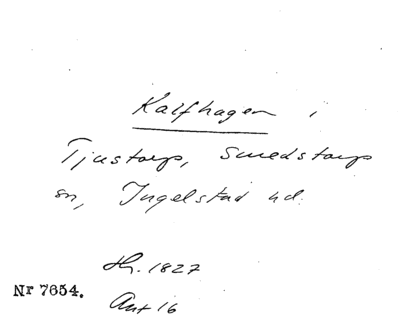 Kalfhagen,
Tjustorp, Smedstorps
sn, Ingelstad hd.
Hr. 1827
Nr 7654.
Ant 16